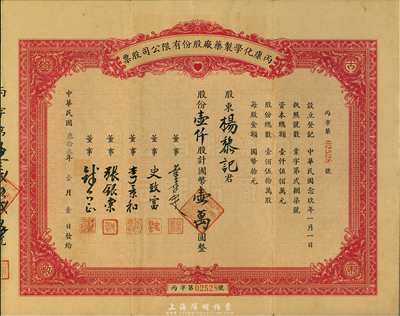 丙康化學製藥廠股份有限公司股票
丙字第 02528 號
設立登記 中華民國念玖年一月一日
執照號數 業字第弐捌柒號
資本總額 壹仟伍佰萬圓
股份總數 壹佰伍拾萬股
每股金額 國幣拾元
股東 楊黎記 君
股份 壹仟 股計國幣 壹萬 圓整
董事
董事 史致富
董事 李秉和
董事 張銀東
董事
中華民國 叁拾 年 壹 月 壹 日發給
丙字第02528號
上海陽明拍賣